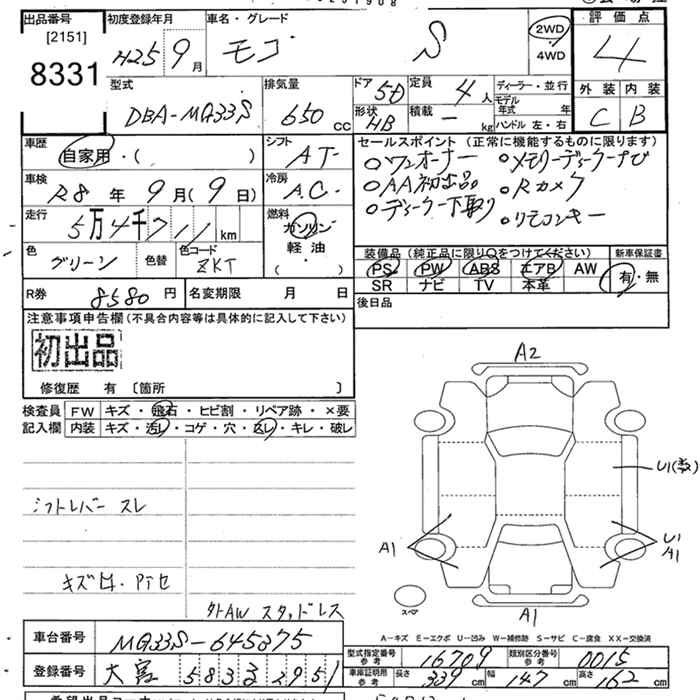 出品番号 初度登録年月 車名・グレード 評価点
[2151]
8331 H25 9月 モコ S 2WD 4WD 4
型式 排気量 ドア 5D 定員 4人 ディーラー・並行 外装 内装
DBA-MG33S 650cc 形状 HB 積載 - kg モデル年式 年 C B
ハンドル 左・右
車歴 シフト セールスポイント (正常に機能するものに限ります)
自家用・( ) AT ○ワンオーナー ○メモリーディーラーナビ
車検 冷房 ○AA初出品 ○Rカメラ
R8年 9月(9日) A.C. ○ディーラー下取り ○リモコンキー
走行 5万4千711km 燃料 ガソリン 軽油・( )
色 グリーン 色替 色コード ZKT
装備品 (純正品に限り○をつけてください) 新車保証書
PS PW ABS エアB AW 有・無
SR ナビ TV 本革
R券 8580円 名変期限 月 日 後日品
注意事項申告欄 (不具合内容等は具体的に記入して下さい)
初出品
修復歴 有 〔箇所 〕
検査員 FW キズ・飛石・ヒビ割・リペア跡・×要
記入欄 内装 キズ・汚レ・コゲ・穴・スレ・キレ・破レ
A2
U1(数)
シフトレバー スレ
A1 U1
A1
スペア
外AW スタッドレス
A1
A-キズ E-エクボ U-凹み W-補修跡 S-サビ C-腐食 XX-交換済
車台番号 MG33S-645375
型式指定番号 参考 16709 類別区分番号 参考 0015
登録番号 大宮 583 る 2951
車庫証明用 参考 長さ 339cm 幅 147cm 高さ 162cm